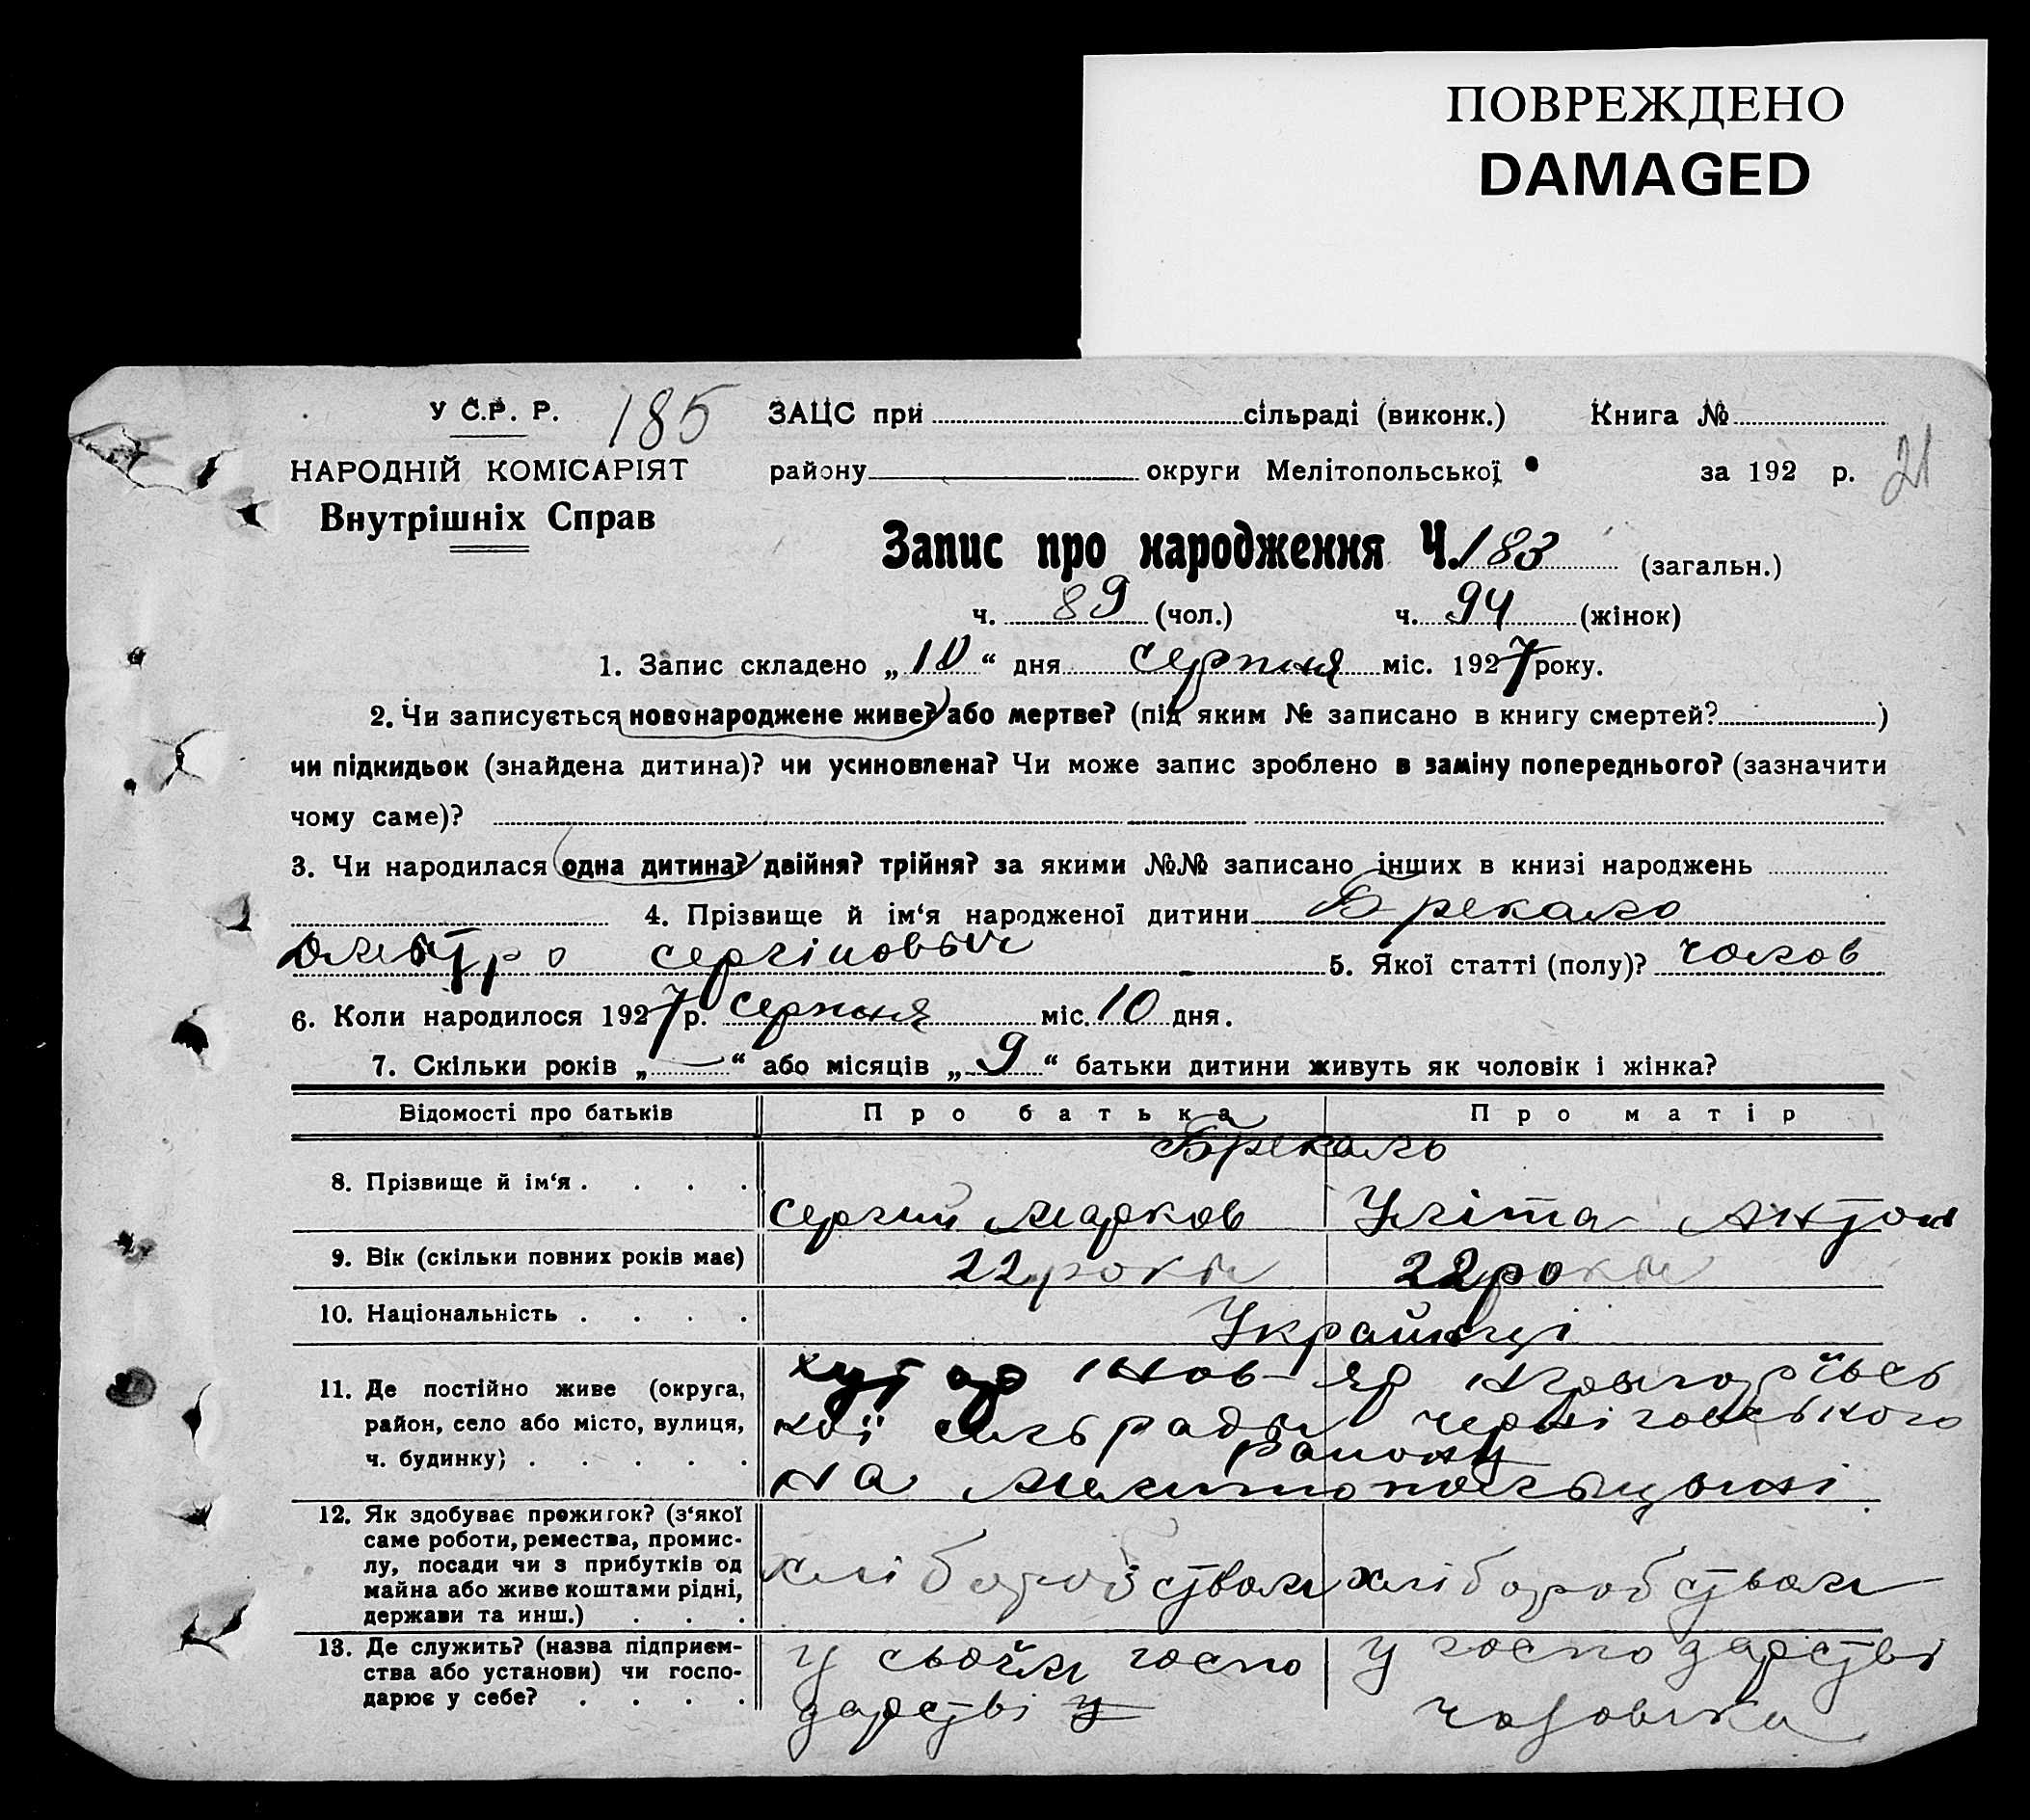 ПОВРЕЖДЕНО
DAMAGED
У С.Р. Р. 185 ЗАЦС при сільраді (виконк.) Книга №
НАРОДНІЙ КОМІСАРІЯТ району округи Мелітопольської за 192 р. 21
Внутрішніх Справ
Запис про народження Ч. 183 (загальн.)
ч. 89 (чол.) ч. 94 (жінок)
1. Запис складено „10“ дня серпня міс. 1927 року.
2. Чи записується новонароджене живе? або мертве? (під яким № записано в книгу смертей? )
чи підкидьок (знайдена дитина)? чи усиновлена? Чи може запис зроблено в заміну попереднього? (зазначити
чому саме)?
3. Чи народилася одна дитина? двійня? трійня? за якими №№ записано інших в книзі народжень
4. Прізвище й ім‘я народженої дитини Брекало
Дмытро 5. Якої статті (полу)? чолов
6. Коли народилося 1927 р. серпня міс. 10 дня.
7. Скільки років „—“ або місяців „9“ батьки дитини живуть як чоловік і жінка?
Відомості про батьків Про батька Про матір
Брекало
8. Прізвище й ім‘я . . . . Сергий Марков Уліта Антон
9. Вік (скільки повних років має) 22 рокы 22 рокы
10. Національність . . . . Украйнці
11. Де постійно живе (округа, хутор Нов-Яр
район, село або місто, вулиця, кої сильрады черніговського
ч. будинку; . . . . . району
на Мелитопольщыні
12. Як здобуває прожиток? (з‘якої
саме роботи, ремества, промис-
лу, посади чи з прибутків од хліборобством хліборобством
майна або живе коштами рідні,
держави та инш.) . . .
13. Де служить? (назва підприєм- у свойм госпо у господарстві
ства або установи) чи госпо-
дарює у себе? . . . . дарстві у чоловіка